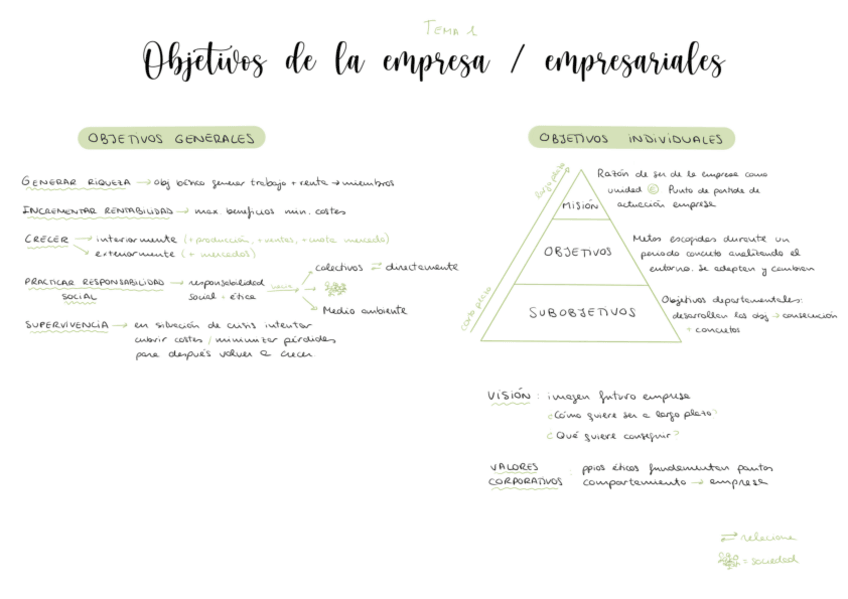 TEMA 1
Objetivos de la empresa / empresariales
OBJETIVOS GENERALES
GENERAR RIQUEZA → obj básico generar trabajo + renta → miembros
INCREMENTAR RENTABILIDAD → max. beneficios min. costes
CRECER → interiormente (+ producción, + ventas, + cuota mercado)
→ exteriormente (+ mercados)
PRACTICAR RESPONSABILIDAD → responsabilidad
SOCIAL social - ética
hacia
colectivos ⇄ directamente
Medio ambiente
SUPERVIVENCIA → en situación de crisis intentar
cubrir costes / minimizar pérdidas
para después volver a crecer.
OBJETIVOS INDIVIDUALES
largo plazo
corto plazo
MISIÓN
Razón de ser de la empresa como
unidad Punto de partida de
actuación empresa
OBJETIVOS
Metas escogidas durante un
periodo concreto analizando el
entorno. Se adaptan y cambian
SUBOBJETIVOS
Objetivos departamentales:
desarrollan los obj → consecución
+ concretos
VISIÓN : imagen futuro empresa
¿Cómo quiere ser a largo plazo?
¿Qué quiere conseguir?
VALORES : ppios éticos fundamentan pautas
CORPORATIVOS comportamiento → empresa
⇄ relaciona
= sociedad